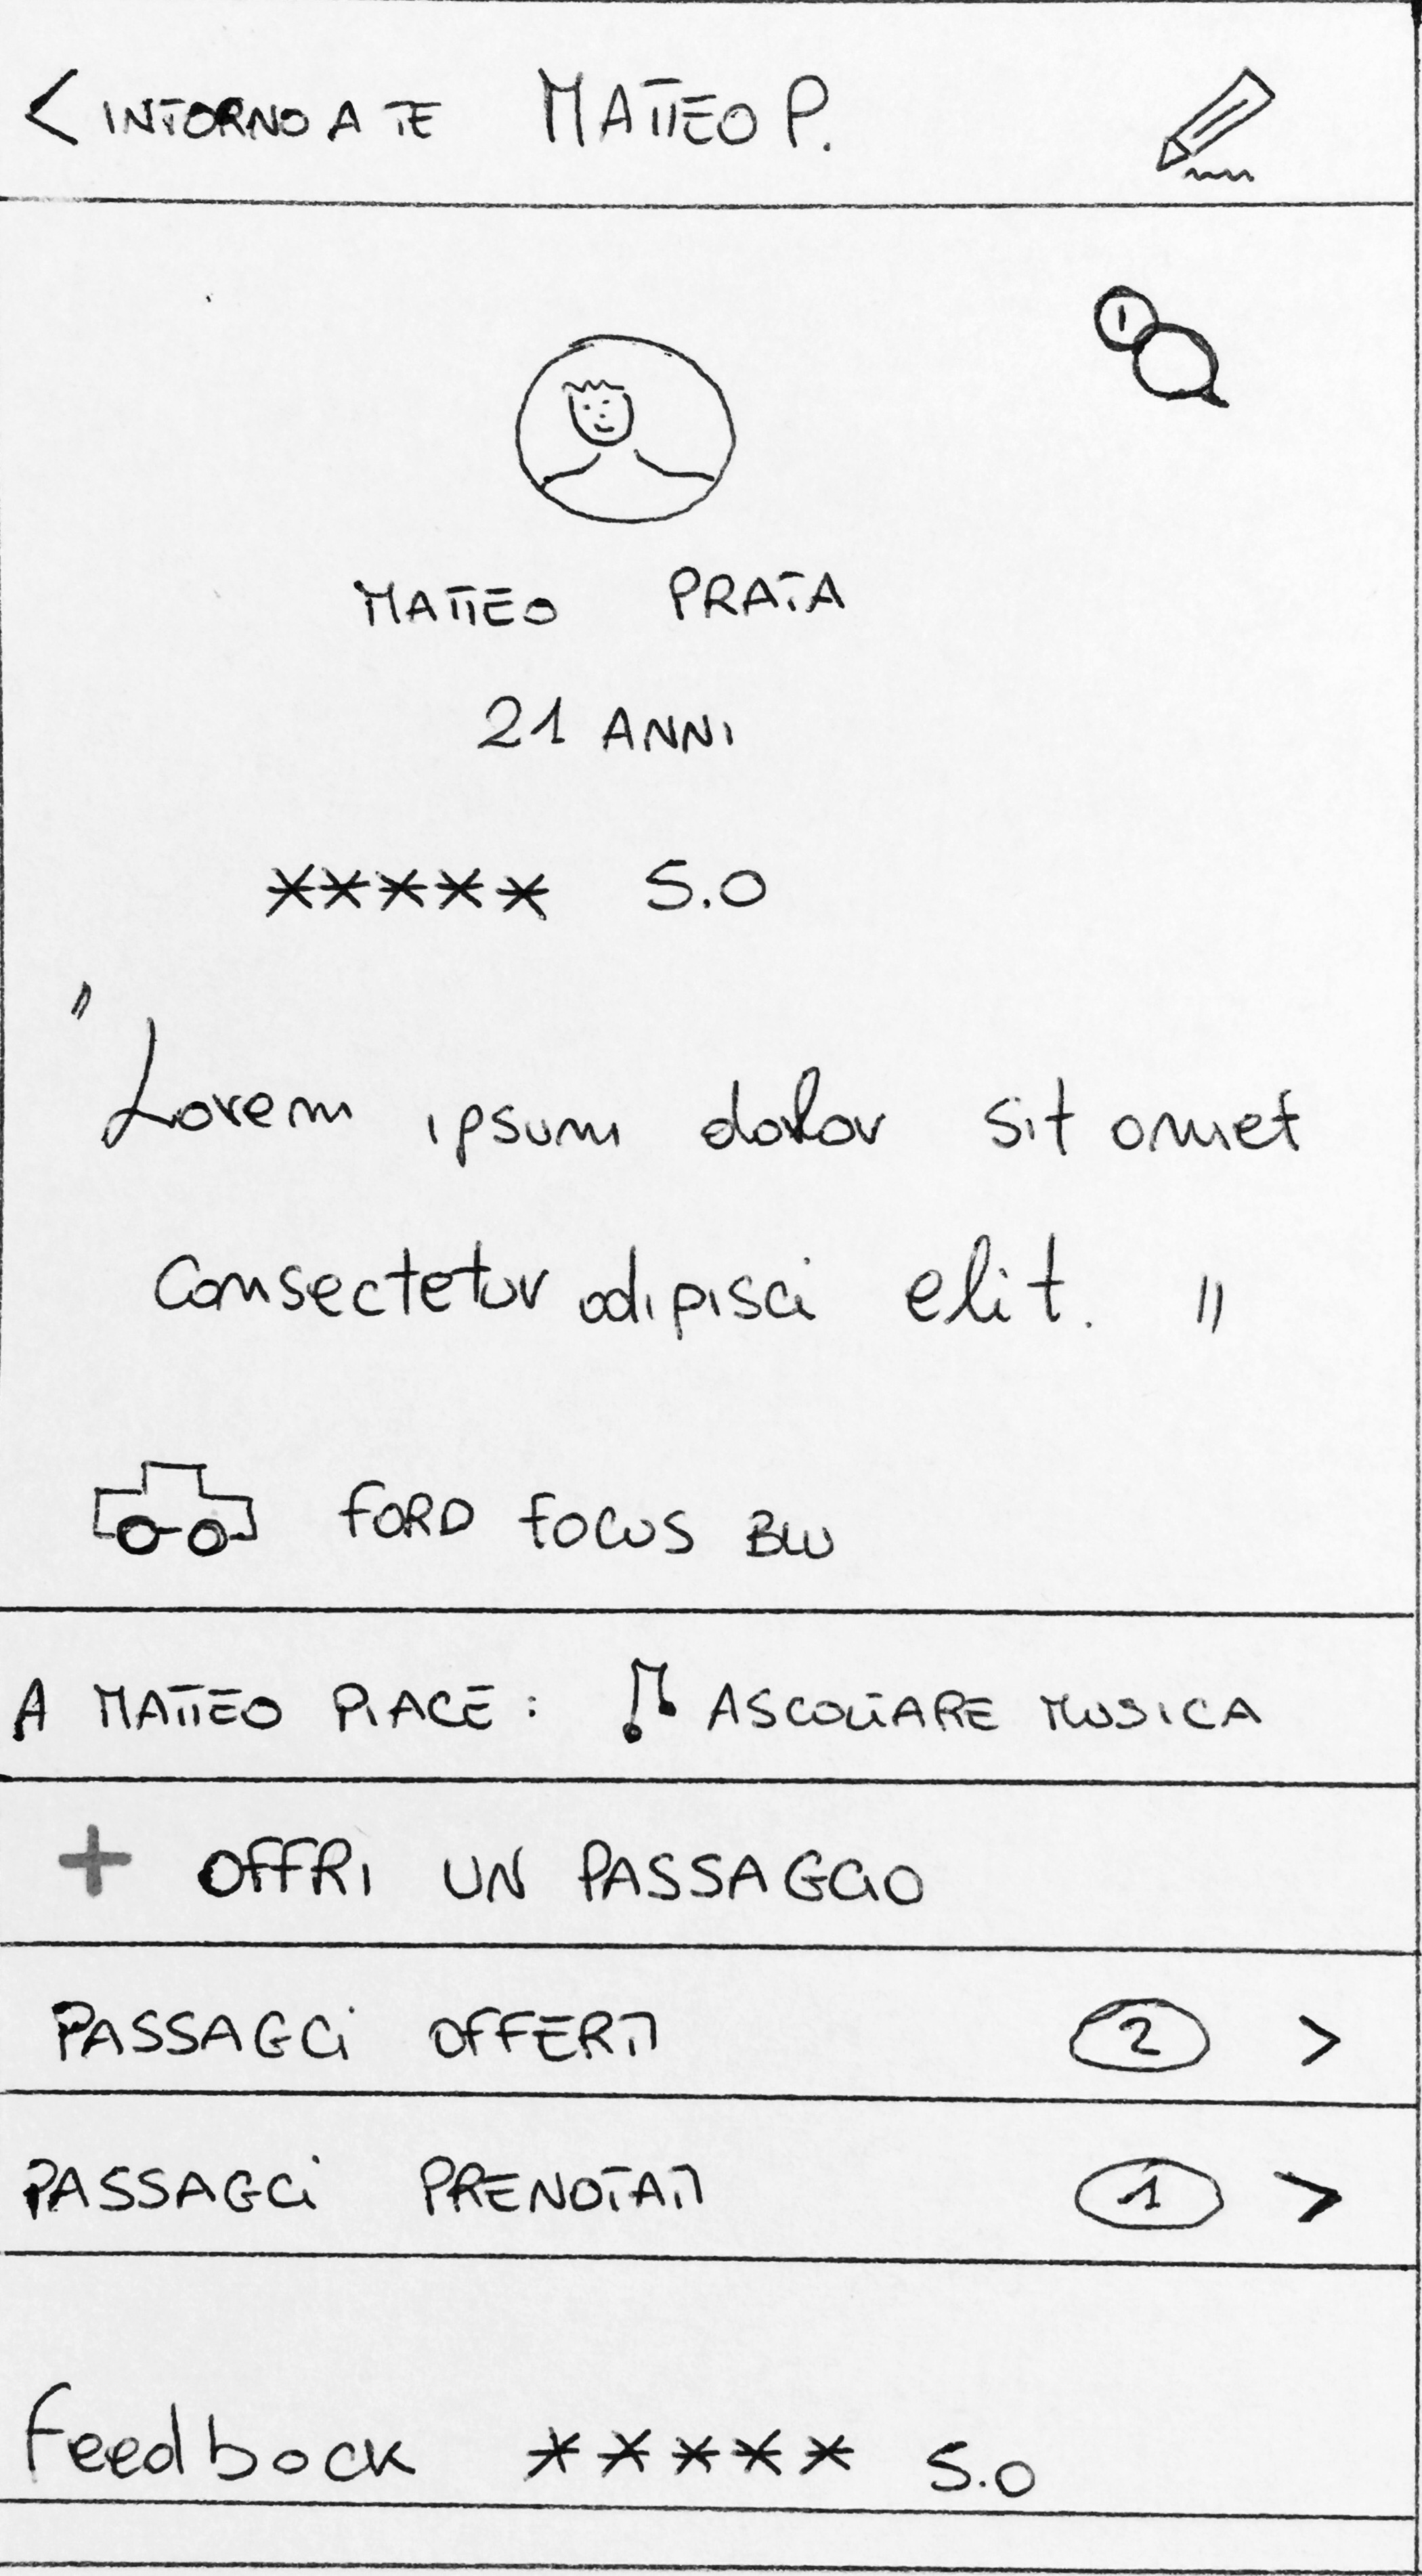 < INTORNO A TE MATTEO P.
1
MATTEO PRATA
21 ANNI
***** 5.0
"Lorem ipsum dolor sit amet
consectetur adipisci elit."
FORD FOCUS BLU
A MATTEO PIACE: ASCOLTARE MUSICA
+ OFFRI UN PASSAGGIO
PASSAGGi OFFERTI 2 >
PASSAGGi PRENOTATI 1 >
Feedback ***** 5.0